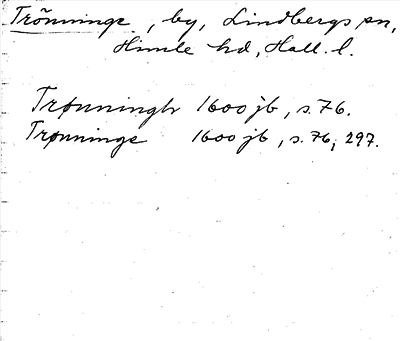 Trönninge, by, Lindbergs sn,
Himle hd, Hall. l.
Trønningh 1600 jb, s. 76.
Trønninge 1600 jb, s. 76, 297.